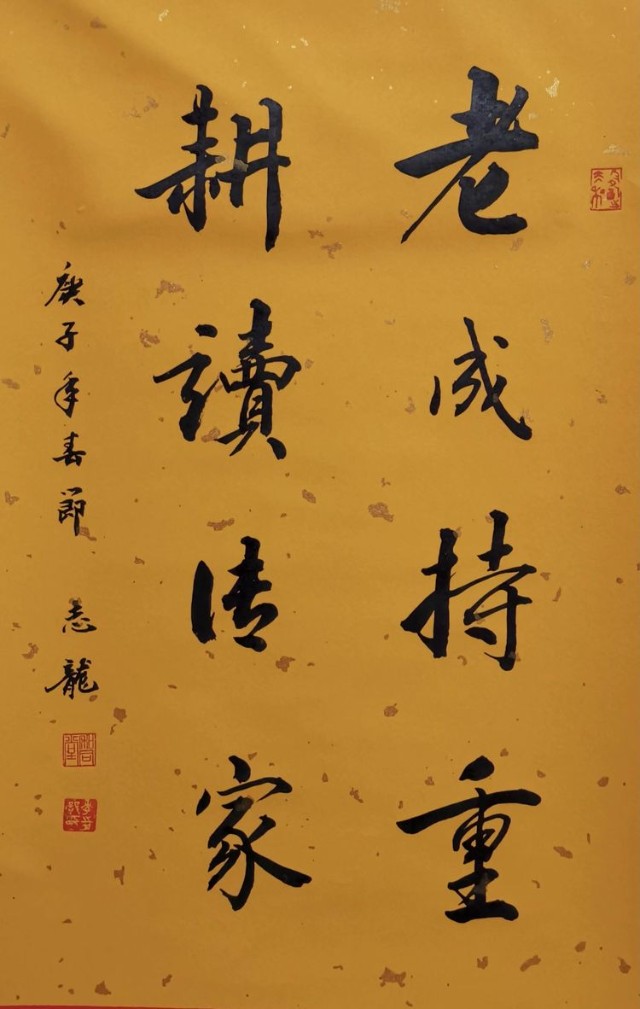 老成持重
耕讀傳家
庚子年春節 志龍